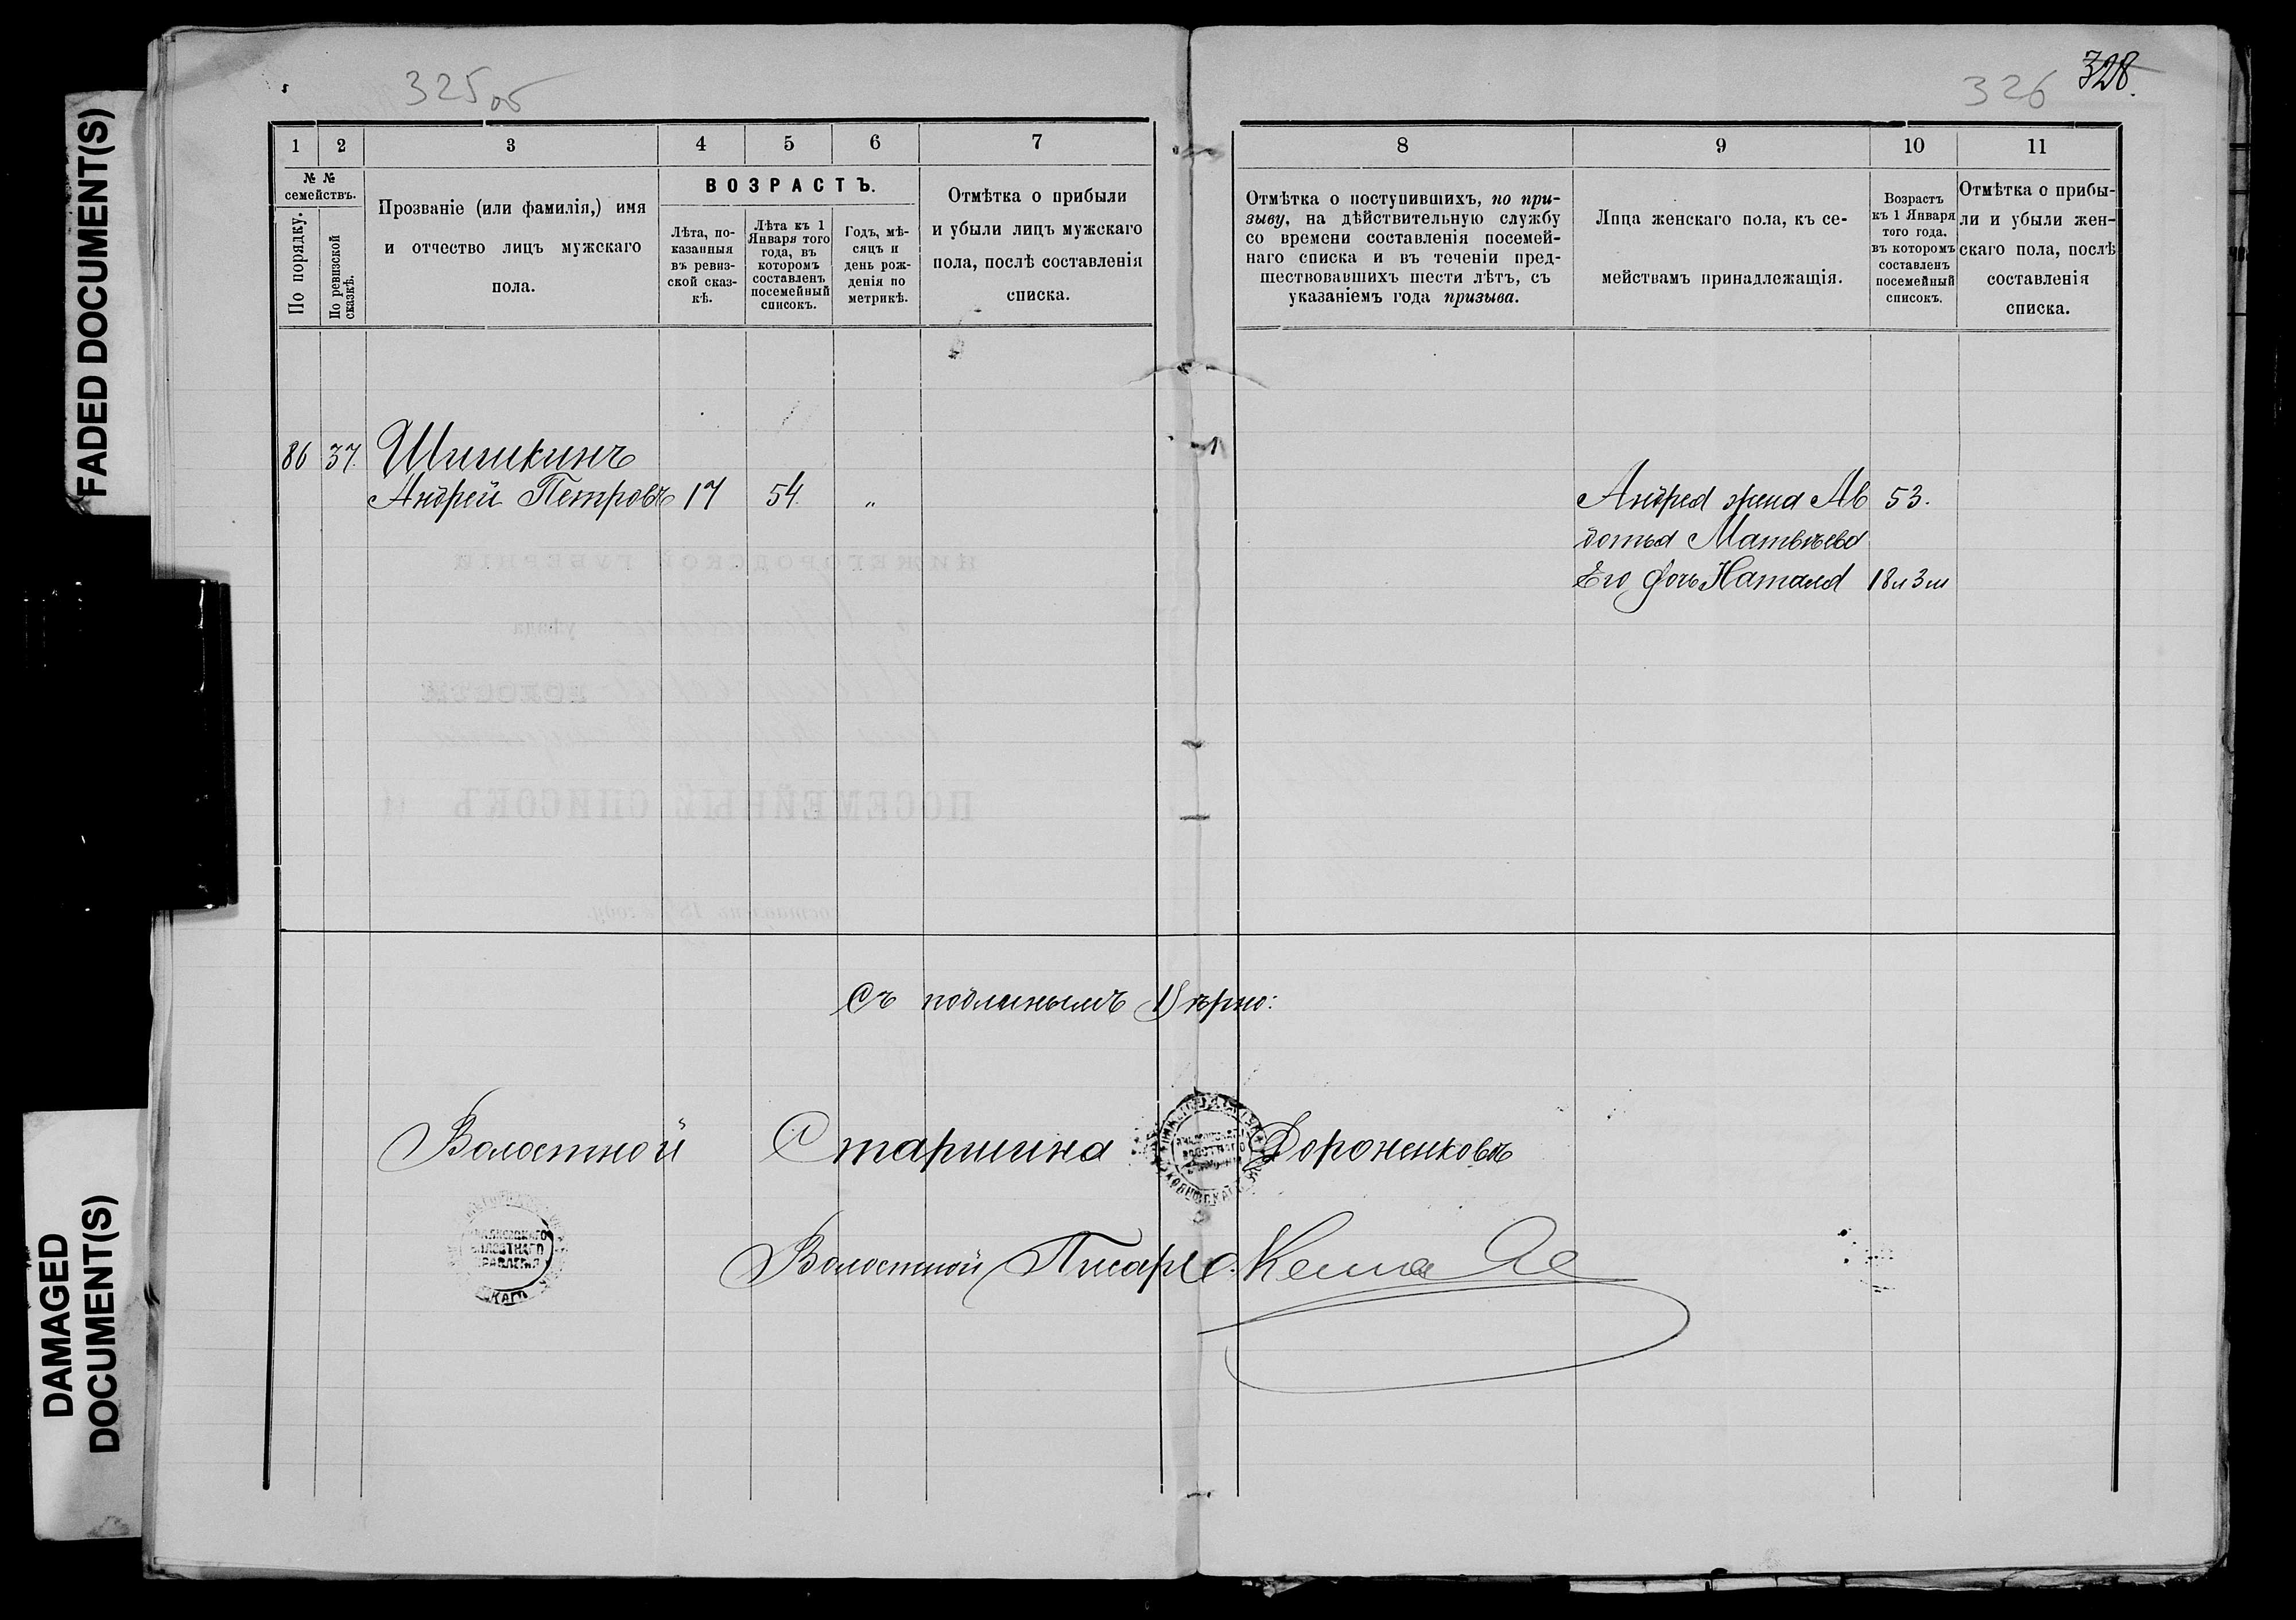 FADED DOCUMENT(S)
DAMAGED
DOCUMENT(S)
325 об
1 2 3 4 5 6 7
№ №
семействъ.
По порядку.
По ревизской
сказкѣ.
Прозваніе (или фамилія,) имя
и отчество лицъ мужскаго
пола.
ВОЗРАСТЪ.
Лѣта, по-
казанныя
въ ревиз-
ской сказ-
кѣ.
Лѣта къ 1
Января того
года, въ
которомъ
составленъ
посемейный
списокъ.
Годъ, мѣ-
сяцъ и
день рож-
денія по
метрикѣ.
Отмѣтка о прибыли
и убыли лицъ мужскаго
пола, послѣ составленія
списка.
86 37. Шишкинъ
Андрей Петровъ 17 54. „
326 328.
8 9 10 11
Отмѣтка о поступившихъ, по при-
зыву, на дѣйствительную службу
со времени составленія посемей-
наго списка и въ теченіи пред-
шествовавшихъ шести лѣтъ, съ
указаніемъ года призыва.
Лица женскаго пола, къ се-
мействамъ принадлежащія.
Возрастъ
къ 1 Января
того года.
въ которомъ
составленъ
посемейный
списокъ.
Отмѣтка о прибы-
ли и убыли жен-
скаго пола, послѣ
составленія
списка.
1
Андрея жена Ав 53.
дотья Матвѣева
Его дочь Наталья 18 и 3 м
Съ подлинымъ Вѣрно:
Волостной Старшина Дороненковъ
Волостной Писарь
ВОЛОСТНАГО
ПРАВЛЕНІЯ